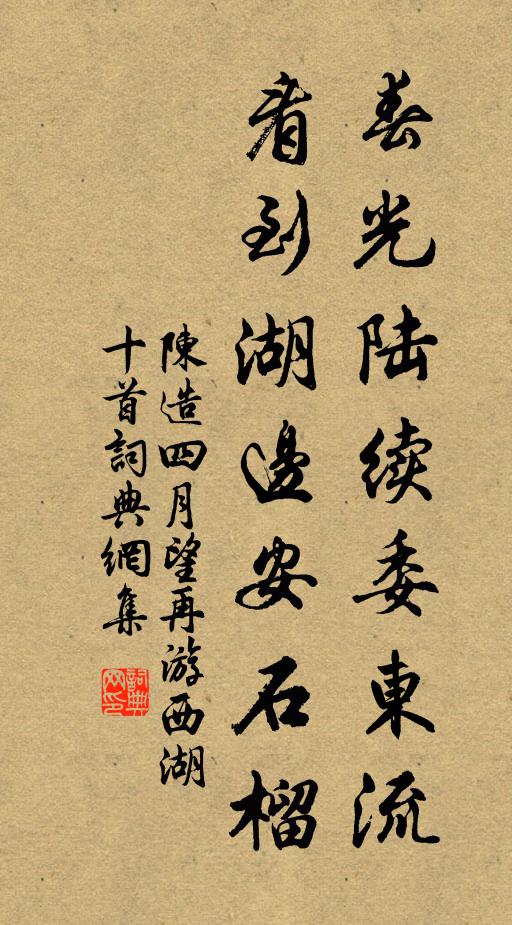 春光陆续委東流
看到湖邊安石榴
陳造四月望再游西湖
十首詞典網集
詞典网印